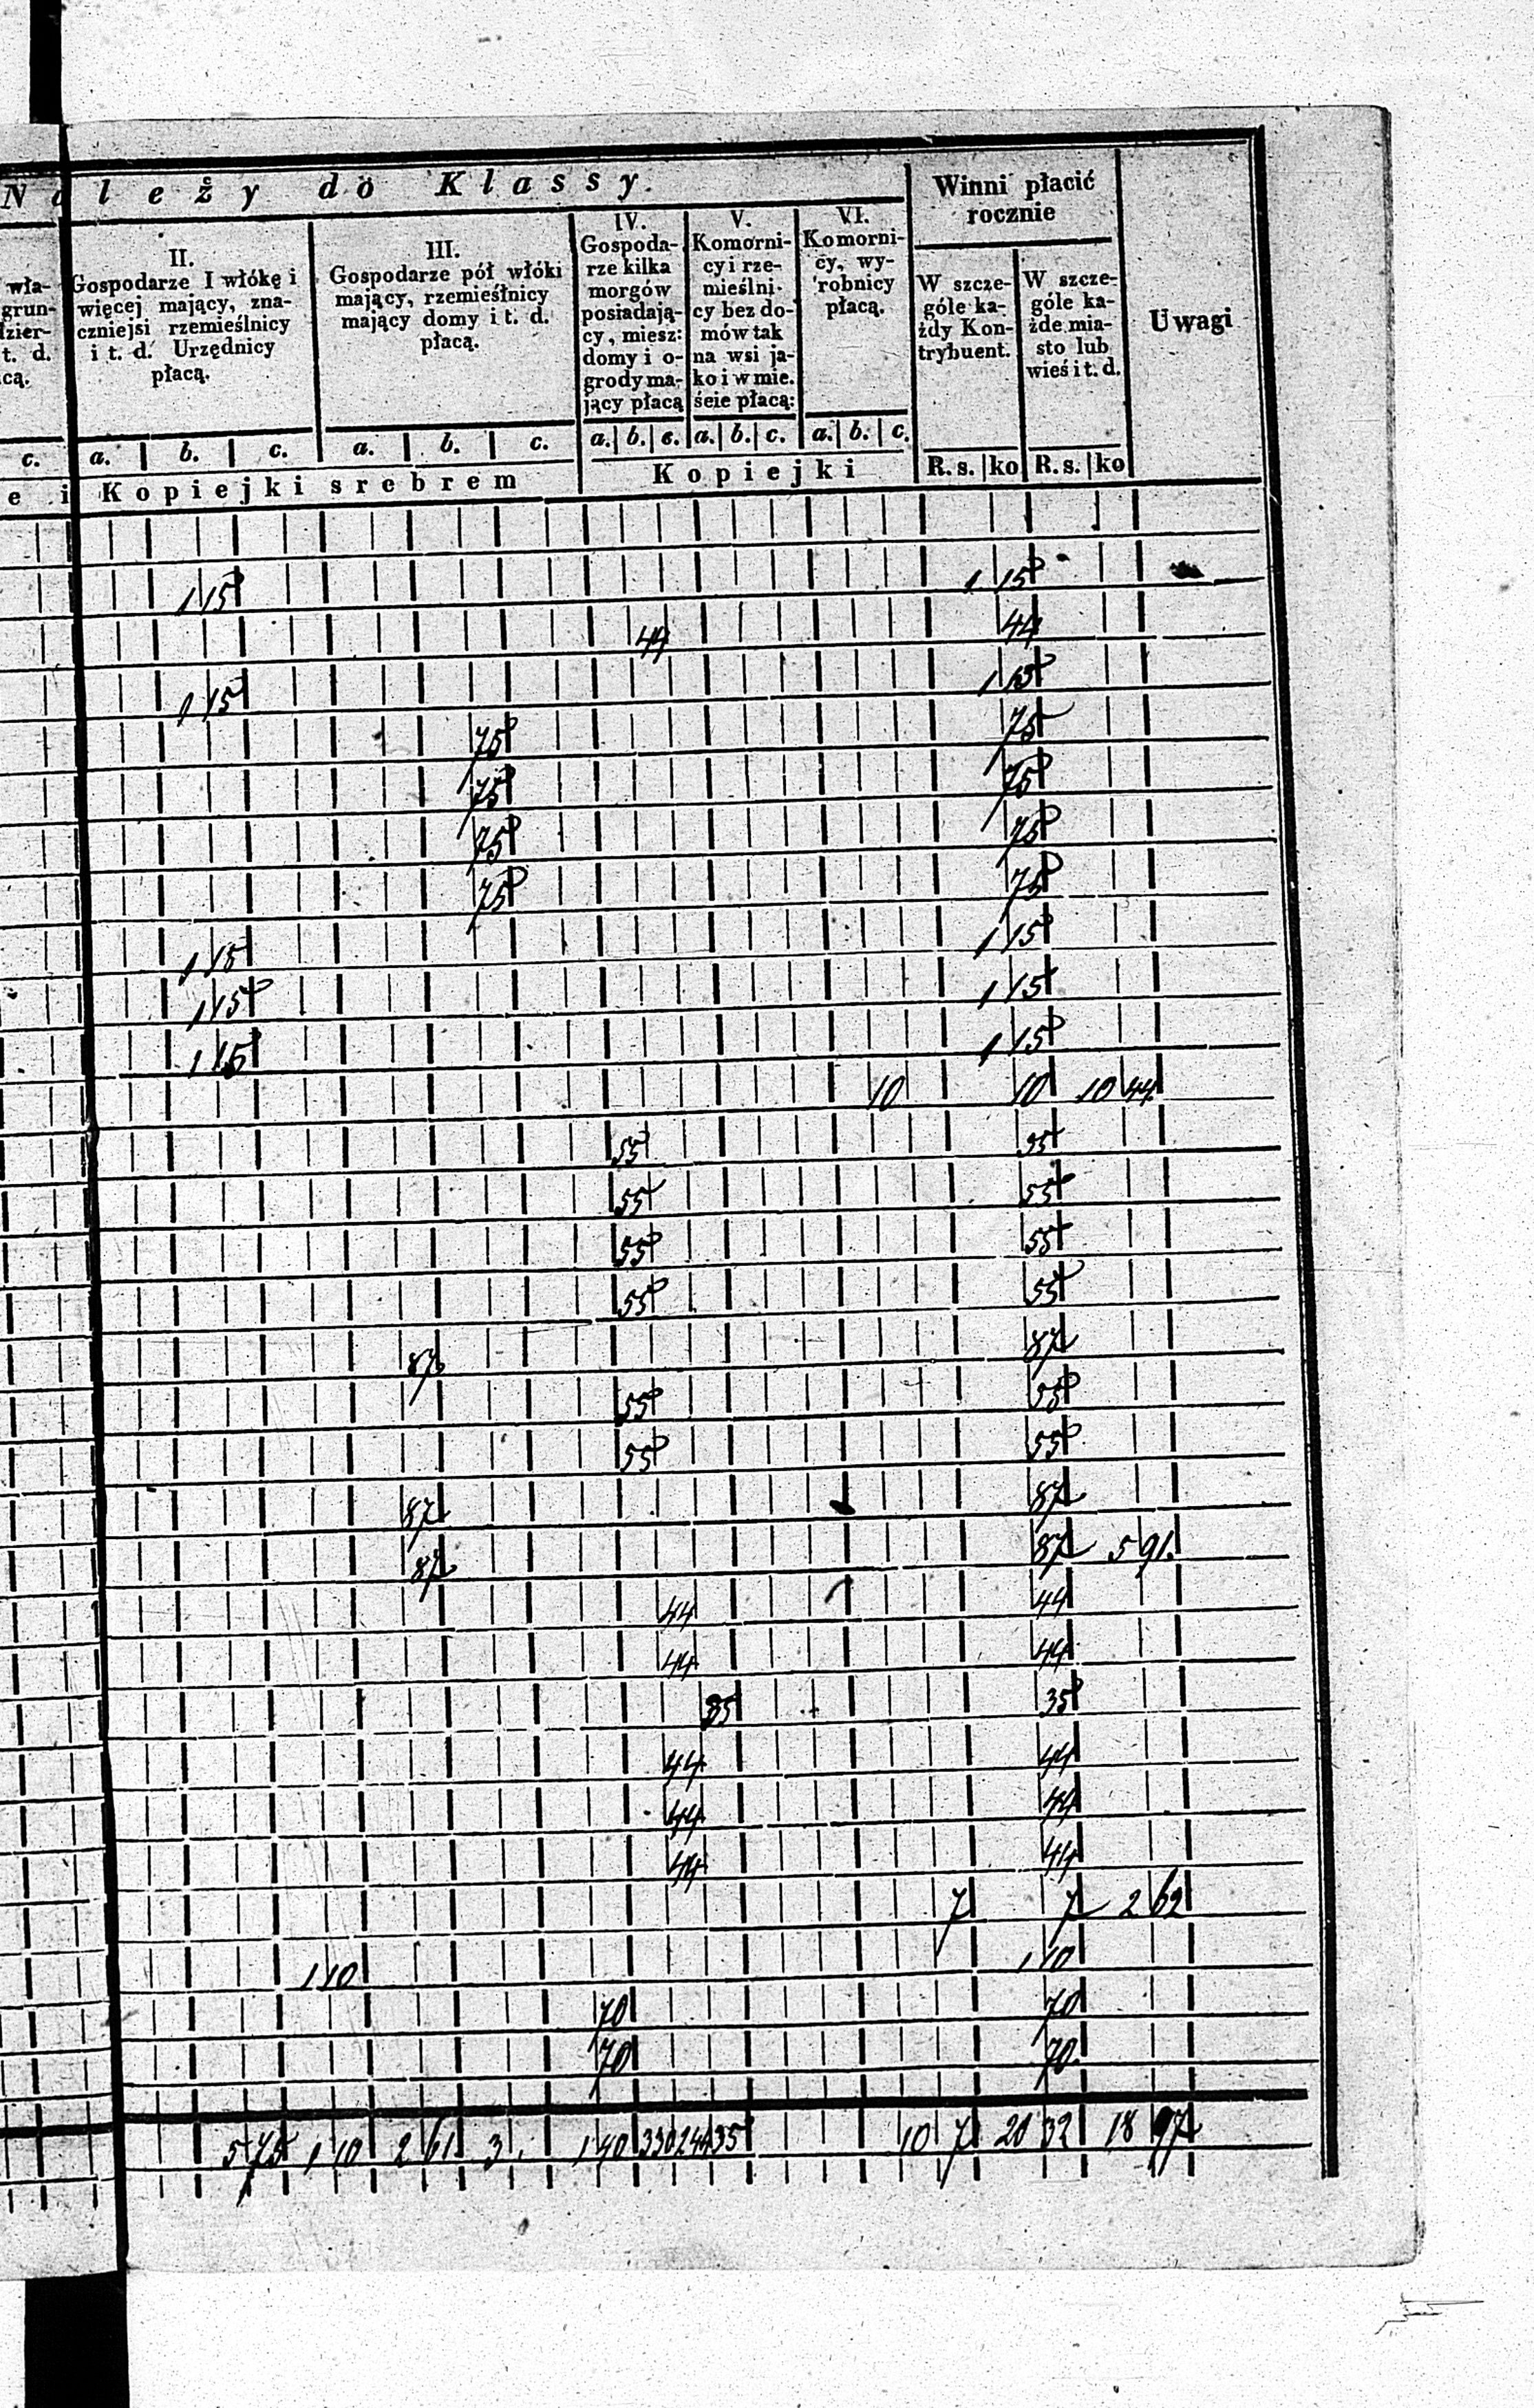 Należy do Klassy.
Winni płacić rocznie
wła-
grun-
dzier-
t. d.
cą.
II.
Gospodarze I włókę i
więcej mający, zna-
czniejsi rzemieślnicy
i t. d. Urzędnicy
płacą.
III.
Gospodarze pół włóki
mający, rzemieślnicy
mający domy i t. d.
płacą.
IV.
Gospoda-
rze kilka
morgów
posiadają-
cy, miesz:
domy i o-
grody ma-
jący płacą
V.
Komorni-
cy i rze-
mieślni-
cy bez do-
mów tak
na wsi ja-
ko i w mie.
ście płacą:
VI.
Komorni-
cy, wy-
robnicy
płacą.
W szcze-
góle ka-
żdy Kon-
trybuent.
W szcze-
góle ka-
żde mia-
sto lub
wieś i t. d.
Uwagi
c. a. b. c. a. b. c. a. b. c. a. b. c. a. b. c.
e i Kopiejki srebrem Kopiejki R. s. ko R. s. ko
1 15 1 15
44 44
1 15 1 15
75 75
75 75
75 75
75 75
1 15 1 15
1 15 1 15
1 15 1 15
10 10 10 44
55 55
55 55
55 55
55 55
87 87
55 55
55 55
87 87
87 87 5 91
44 44
44 44
35 35
44 44
44 44
44 44
7 7 2 62
1 10 1 10
70 70
70 70
5 75 1 10 2 61 3 1 40 330 244 35 10 7 20 32 18 97